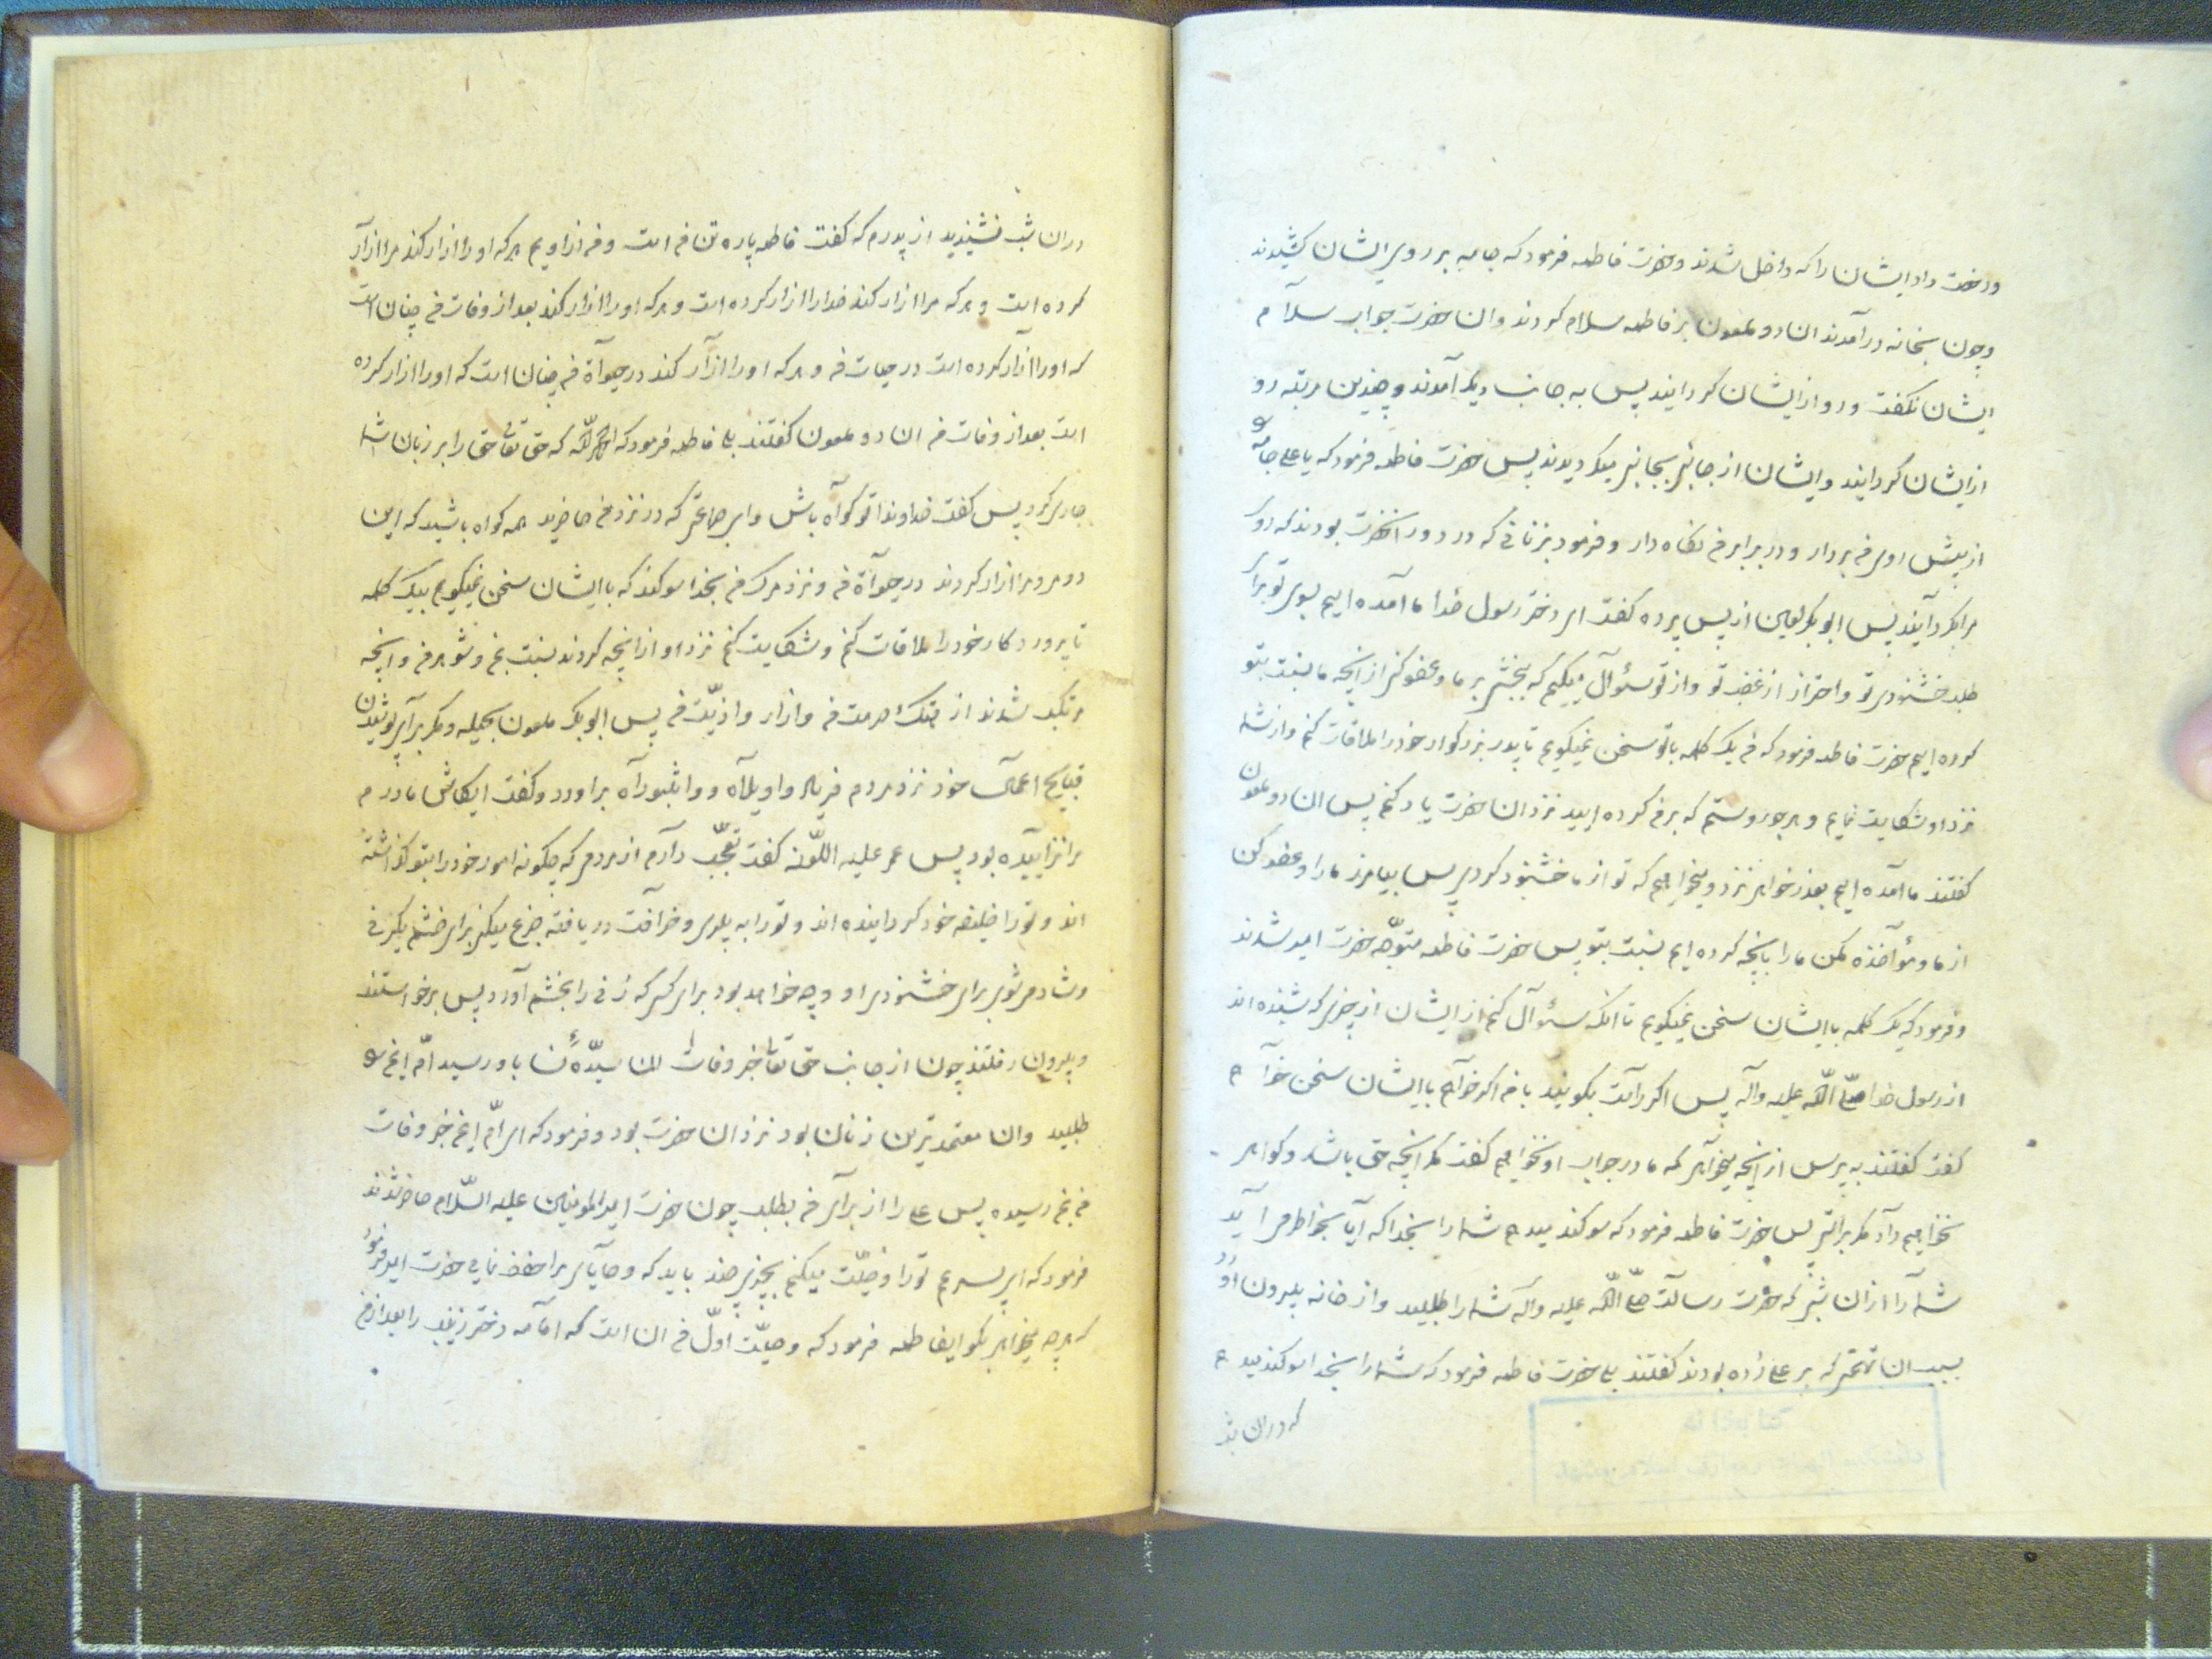 ورخصت داد ایشان را که داخل شدند و حضرت فاطمه فرمود که جامه بر روی ایشان کشیدند
وچون بخانه درآمدند ان دو ملعون بر فاطمه سلام کردند و ان حضرت جواب سلام
ایشان نکفت و رو از ایشان کردانید پس به جانب دیکر آمدند و چندین مرتبه رو
از ایشان کردانید و ایشان از جانبی بجانبی میکردیدند پس حضرت فاطمه فرمود که یا علی جامه
از پیش روی من بردار و در برابر من نکاه دار و فرمود بزنانی که در دور انحضرت بودند که روی
مرا بکردانید پس ابو بکر لعین از پس پرده کفت ای دختر رسول خدا ما آمده ایم بسوی تو برای
طلب خشنودی تو و احتراز از غضب تو و از تو سئوال میکنیم که ببخشی بر ما و عفو کنی از انچه ما نسبت بتو
کرده ایم حضرت فاطمه فرمود که من یک کلمه با تو سخن نمیکویم تا پدر بزرکوار خود را ملاقات کنم و از شما
نزد او شکایت نمایم و هر جور و ستم که بر من کرده ایید نزد ان حضرت یاد کنم پس ان دو ملعون
کفتند ما آمده ایم بعذر خواهی نزد و میخواهیم که تو از ما خشنود کردی پس بیامرز ما را و عفو کن
از ما و مؤآخذه مکن ما را بانچه کرده ایم نسبت بتو پس حضرت فاطمه متوجّه حضرت امیر شدند
و فرمود که یک کلمه با ایشان سخن نمیکویم تا انکه سئوآل کنم از ایشان از چیزی که شنیده اند
از رسول خدا صلّی اللّه علیه وآله پس اکر راست بکویند با من اکر خوآهم با ایشان سخن خوآهم
کفت کفتند به پرس از انچه میخوآهی که ما در جواب او نخواهیم کفت مکر انچه حق باشد و کواهی
نخواهیم داد مکر براستی پس حضرت فاطمه فرمود که سوکند میدهم شما را بخدا که آیا بخاطر می آید
شما را از ان شبی که حضرت رسالت صلّی اللّه علیه واله شما را طلبید و از خانه بیرون آورد
بسبب ان تهمتی که بر علی زده بودند کفتند بلی حضرت فاطمه فرمود که شما را بخدا سوکند میدهم
که در ان شب
در ان شب نشنیدید از پدرم که کفت فاطمه پاره تن من است و من از اویم هر که او را ازار کند مرا ازآر
کرده است و هر که مرا ازار کند خدا را ازار کرده است و هر که او را ازار کند بعد از وفات من چنان است
که او را آزار کرده است در حیات من و هر که او را ازآر کند در حیوآة من چنان است که او را ازار کرده
است بعد از وفات من ان دو ملعون کفتند بلی فاطمه فرمود که الحمد للّه که حق تعالی حق را بر زبان شما
جاری کرد پس کفت خداوندا تو کوآه باش و ای جماعتی که در نزد من حاضرید همه کواه باشید که این
دو مرد مرا ازار کردند در حیوآة من و نزد مرک من بخدا سوکند که با ایشان سخن نمیکویم بیک کلمه
تا پروردکار خود را ملاقات کنم و شکایت کنم نزد او از انچه کردند نسبت بمن و شوهر من و انچه
مرتکب شدند از هتک حرمت من و ازار و اذیّت من پس ابو بکر ملعون بحیله و مکر برآی پوشیدن
قبایح اعمآل خود نزد مردم فریاد واویلآه و واثبورآه براورد و کفت ایکاش مادرم
مرا نزاییده بود پس عمر علیه اللّعنه کفت تعجّب دآرم از مردم که چکونه امور خود را بتو کذاشته
اند و تو را خلیفه خود کردانیده اند و تو را به پیری و خرآفت دریافته جزع میکنی برای خشم یک زنی
و شاد میشوی برای خشنودی او و چه خواهد بود برای کسی که زنی را بخشم آورد پس برخواستند
و بیرون رفتند چون از جانب حق تعالی خبر وفات ان سیّدهٔ نسا باو رسید امّ ایمن را
طلبید وان معتمدترین زنان بود نزد ان حضرت بود و فرمود که ای امّ ایمن خبر وفات
من بمن رسیده پس علی را از برآی من بطلب چون حضرت امیر المومنین علیه السّلام حاضر شدند
فرمود که ای پسر عم تو را وصیّت میکنم بچیزی چند باید که وصایآی مرا حفظ نمایی حضرت امیر فرمود
که هر چه میخواهی بکو ایفاطمه فرمود که وصیّت اوّل من ان است که امآمه دختر زینب را بعد از من